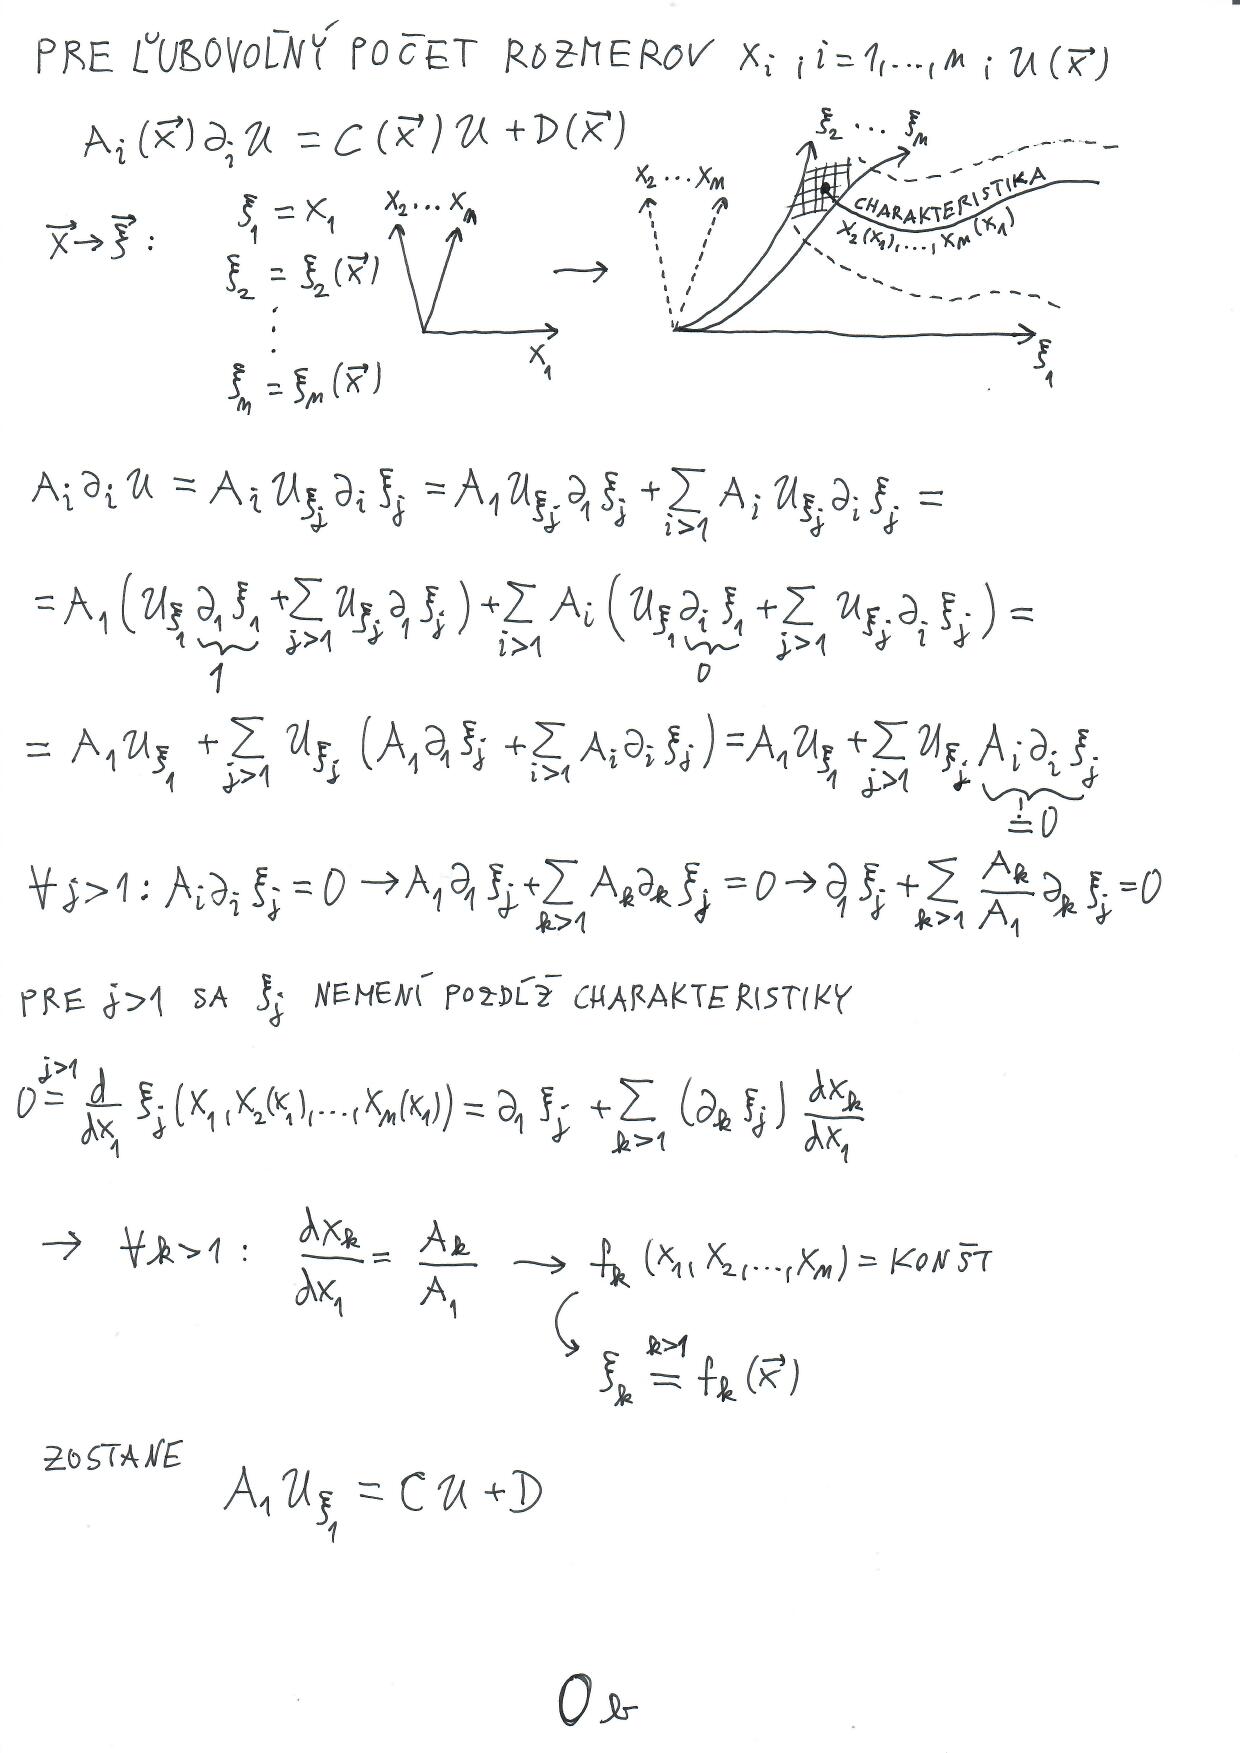 PRE ĽUBOVOĽNÝ POČET ROZMEROV xᵢ, i=1,...,n; u(x⃗)
Aᵢ(x⃗)∂ᵢu = C(x⃗)u + D(x⃗)
x⃗→ξ⃗:
ξ₁ = x₁
ξ₂ = ξ₂(x⃗)
⋮
ξₙ = ξₙ(x⃗)
x₂...xₙ
x₁
→
x₂...xₙ
ξ₂ ... ξₙ
CHARAKTERISTIKA
x₂(x₁),...,xₙ(x₁)
ξ₁
Aᵢ∂ᵢu = Aᵢ u_ξⱼ ∂ᵢξⱼ = A₁ u_ξⱼ ∂₁ξⱼ + ∑_{i>1} Aᵢ u_ξⱼ ∂ᵢξⱼ =
= A₁(u_ξ₁ ∂₁ξ₁ + ∑_{j>1} u_ξⱼ ∂₁ξⱼ) + ∑_{i>1} Aᵢ(u_ξ₁ ∂ᵢξ₁ + ∑_{j>1} u_ξⱼ ∂ᵢξⱼ) =
1 0
= A₁u_ξ₁ + ∑_{j>1} u_ξⱼ (A₁∂₁ξⱼ + ∑_{i>1} Aᵢ∂ᵢξⱼ) = A₁u_ξ₁ + ∑_{j>1} u_ξⱼ Aᵢ∂ᵢξⱼ
=! 0
∀j>1: Aᵢ∂ᵢξⱼ = 0 → A₁∂₁ξⱼ + ∑_{k>1} Aₖ∂ₖξⱼ = 0 → ∂₁ξⱼ + ∑_{k>1} Aₖ/A₁ ∂ₖξⱼ = 0
PRE j>1 SA ξⱼ NEMENÍ POZDĹŽ CHARAKTERISTIKY
0 =^{j>1} d/dx₁ ξⱼ(x₁,x₂(x₁),...,xₙ(x₁)) = ∂₁ξⱼ + ∑_{k>1} (∂ₖξⱼ) dxₖ/dx₁
→ ∀k>1: dxₖ/dx₁ = Aₖ/A₁ → fₖ(x₁,x₂,...,xₙ) = KONŠT
ξₖ =^{k>1} fₖ(x⃗)
ZOSTANE
A₁u_ξ₁ = Cu + D
0b